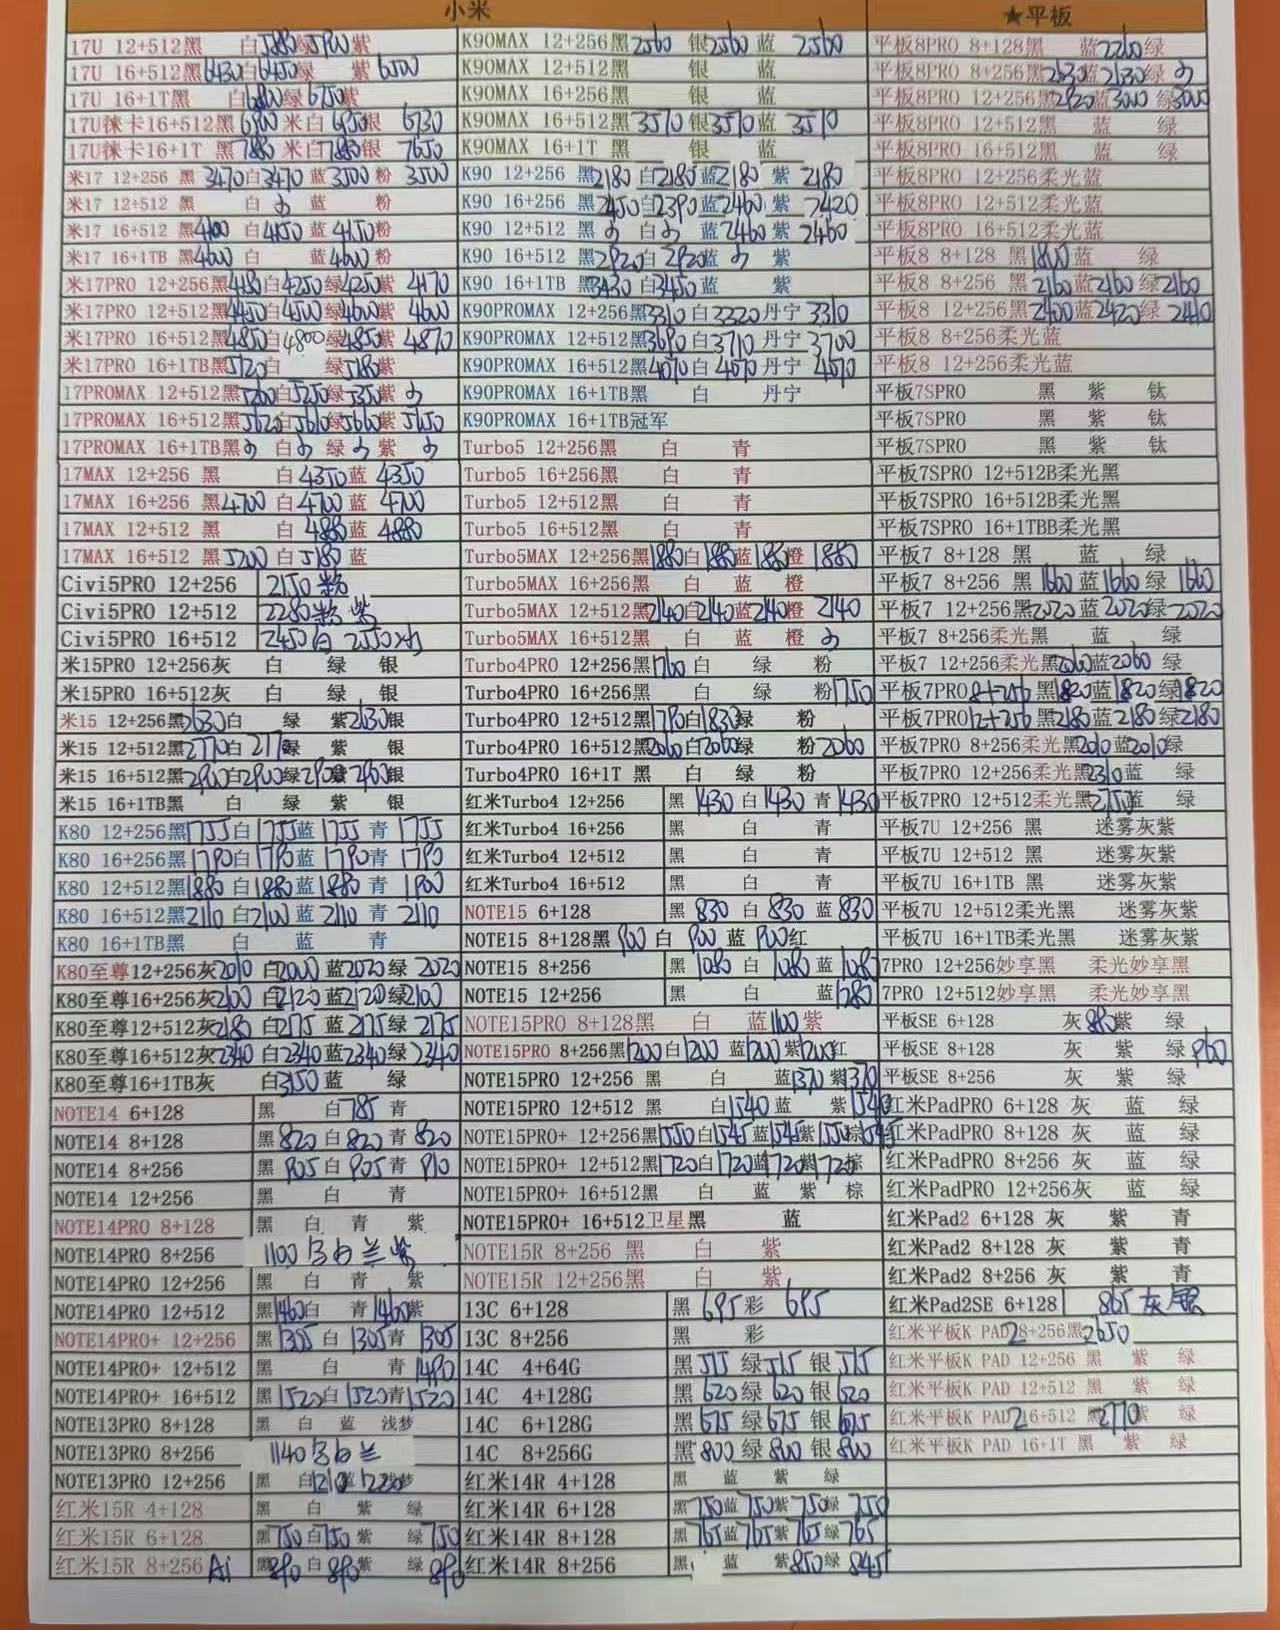 小米
17U 12+512黑 白5880绿5900紫
17U 16+512黑6430白6450绿 紫6500
17U 16+1T黑 白6800绿6750紫
17U徕卡16+512黑6900米白6950银 6730
17U徕卡16+1T 黑7880米白7880银 7650
米17 12+256 黑3470白3470蓝3500粉3500
米17 12+512 黑 白 蓝 粉
米17 16+512 黑4100 白4150蓝4150粉
米17 16+1TB黑4600 白 蓝4600粉
米17PRO 12+256黑4180白4250绿4250紫4170
米17PRO 12+512黑4450白4500绿4600紫4600
米17PRO 16+512黑4850白4800绿4850紫4870
米17PRO 16+1TB黑5120白 绿5180紫
17PROMAX 12+512黑5260白5250绿5350紫
17PROMAX 16+512黑5620白5610绿5660紫5650
17PROMAX 16+1TB黑 白 绿 紫
17MAX 12+256 黑 白4350蓝4350
17MAX 16+256 黑4700白4700蓝4700
17MAX 12+512 黑 白4880蓝4880
17MAX 16+512 黑5200白5180蓝
Civi5PRO 12+256 2150粉
Civi5PRO 12+512 2280粉紫
Civi5PRO 16+512 2450白 2550
米15PRO 12+256灰 白 绿 银
米15PRO 16+512灰 白 绿 银
米15 12+256黑2630白 绿 紫2630银
米15 12+512黑2770白2770绿 紫 银
米15 16+512黑2900白2900绿2900紫2900银
米15 16+1TB黑 白 绿 紫 银
K80 12+256黑1755白1755蓝1755青1755
K80 16+256黑1790白1790蓝1790青1790
K80 12+512黑1880白1880蓝1880青1900
K80 16+512黑2110白2100蓝2110青2110
K80 16+1TB黑 白 蓝 青
K80至尊12+256灰2010白2000蓝2020绿2020
K80至尊16+256灰2100白2120蓝2120绿2100
K80至尊12+512灰2180白2175蓝2175绿2175
K80至尊16+512灰2340白2340蓝2340绿2340
K80至尊16+1TB灰 白3150蓝 绿
NOTE14 6+128 黑 白785青
NOTE14 8+128 黑820白820青820
NOTE14 8+256 黑905白905青910
NOTE14 12+256 黑 白 青
NOTE14PRO 8+128 黑 白 青 紫
NOTE14PRO 8+256 1100 白兰紫
NOTE14PRO 12+256 黑 白 青 紫
NOTE14PRO 12+512 黑1460白 青1460紫
NOTE14PRO+ 12+256 黑1305白1305青1305
NOTE14PRO+ 12+512 黑 白 青1490
NOTE14PRO+ 16+512 黑1520白1520青1520
NOTE13PRO 8+128 黑 白 蓝 浅梦
NOTE13PRO 8+256 1140 白兰
NOTE13PRO 12+256 黑 白1210蓝1220浅梦
红米15R 4+128 黑 白 紫 绿
红米15R 6+128 黑750白750紫 绿750
红米15R 8+256 Ai 黑890白890紫 绿890
K90MAX 12+256黑2560 银2560蓝 2560
K90MAX 12+512黑 银 蓝
K90MAX 16+256黑 银 蓝
K90MAX 16+512黑3510银3510蓝 3510
K90MAX 16+1T 黑 银 蓝
K90 12+256 黑2180白2180蓝2180紫2180
K90 16+256 黑2450白2390蓝2460紫2420
K90 12+512 黑 白 蓝2460紫2460
K90 16+512 黑2920白2920蓝 紫
K90 16+1TB 黑3430白3450蓝 紫
K90PROMAX 12+256黑3310白3320丹宁3310
K90PROMAX 12+512黑3690白3710丹宁3700
K90PROMAX 16+512黑4070白4070丹宁4070
K90PROMAX 16+1TB黑 白 丹宁
K90PROMAX 16+1TB冠军
Turbo5 12+256黑 白 青
Turbo5 16+256黑 白 青
Turbo5 12+512黑 白 青
Turbo5 16+512黑 白 青
Turbo5MAX 12+256黑1880白1880蓝1880橙1880
Turbo5MAX 16+256黑 白 蓝 橙
Turbo5MAX 12+512黑2140白2140蓝2140橙2140
Turbo5MAX 16+512黑 白 蓝 橙
Turbo4PRO 12+256黑1760白 绿 粉
Turbo4PRO 16+256黑 白 绿 粉1750
Turbo4PRO 12+512黑1790白1830绿 粉
Turbo4PRO 16+512黑2060白2060绿 粉2060
Turbo4PRO 16+1T 黑 白 绿 粉
红米Turbo4 12+256 黑1430白1430青1430
红米Turbo4 16+256 黑 白 青
红米Turbo4 12+512 黑 白 青
红米Turbo4 16+512 黑 白 青
NOTE15 6+128 黑830白830蓝830
NOTE15 8+128黑900白900蓝900红
NOTE15 8+256 黑1080白1080蓝1080
NOTE15 12+256 黑 白 蓝1280
NOTE15PRO 8+128黑 白 蓝1100紫
NOTE15PRO 8+256黑1200白1200蓝1200紫1200红
NOTE15PRO 12+256 黑 白 蓝1370紫1370
NOTE15PRO 12+512 黑 白1540蓝 紫1540
NOTE15PRO+ 12+256黑1550白1545蓝1545紫1550棕1545
NOTE15PRO+ 12+512黑1720白1720蓝1720紫1720棕
NOTE15PRO+ 16+512黑 白 蓝 紫 棕
NOTE15PRO+ 16+512卫星黑 蓝
NOTE15R 8+256 黑 白 紫
NOTE15R 12+256黑 白 紫
13C 6+128 黑695彩695
13C 8+256 黑 彩
14C 4+64G 黑515绿515银515
14C 4+128G 黑620绿620银620
14C 6+128G 黑675绿675银675
14C 8+256G 黑800绿800银800
红米14R 4+128 黑 蓝 紫 绿
红米14R 6+128 黑750蓝750紫750绿750
红米14R 8+128 黑765蓝765紫765绿765
红米14R 8+256 黑 蓝 紫850绿845
★平板
平板8PRO 8+128黑 蓝2260绿
平板8PRO 8+256黑2630蓝2630绿
平板8PRO 12+256黑2920蓝3000绿3000
平板8PRO 12+512黑 蓝 绿
平板8PRO 16+512黑 蓝 绿
平板8PRO 12+256柔光蓝
平板8PRO 12+512柔光蓝
平板8PRO 16+512柔光蓝
平板8 8+128 黑1800蓝 绿
平板8 8+256 黑2160蓝2160绿2160
平板8 12+256黑2400蓝2420绿2410
平板8 8+256柔光蓝
平板8 12+256柔光蓝
平板7SPRO 黑 紫 钛
平板7SPRO 黑 紫 钛
平板7SPRO 黑 紫 钛
平板7SPRO 12+512B柔光黑
平板7SPRO 16+512B柔光黑
平板7SPRO 16+1TBB柔光黑
平板7 8+128 黑 蓝 绿
平板7 8+256 黑1660蓝1660绿1660
平板7 12+256黑2020蓝2020绿2020
平板7 8+256柔光黑 蓝 绿
平板7 12+256柔光黑2060蓝2060绿
平板7PRO 8+256黑1820蓝1820绿1820
平板7PRO 12+256黑2180蓝2180绿2180
平板7PRO 8+256柔光黑2010蓝2010绿
平板7PRO 12+256柔光黑2310蓝 绿
平板7PRO 12+512柔光黑2755蓝 绿
平板7U 12+256 黑 迷雾灰紫
平板7U 12+512 黑 迷雾灰紫
平板7U 16+1TB 黑 迷雾灰紫
平板7U 12+512柔光黑 迷雾灰紫
平板7U 16+1TB柔光黑 迷雾灰紫
7PRO 12+256妙享黑 柔光妙享黑
7PRO 12+512妙享黑 柔光妙享黑
平板SE 6+128 灰880紫 绿
平板SE 8+128 灰 紫 绿960
平板SE 8+256 灰 紫 绿
红米PadPRO 6+128 灰 蓝 绿
红米PadPRO 8+128 灰 蓝 绿
红米PadPRO 8+256 灰 蓝 绿
红米PadPRO 12+256灰 蓝 绿
红米Pad2 6+128 灰 紫 青
红米Pad2 8+128 灰 紫 青
红米Pad2 8+256 灰 紫 青
红米Pad2SE 6+128 865灰银
红米平板K PAD2 8+256黑2650
红米平板K PAD 12+256 黑 紫 绿
红米平板K PAD 12+512 黑 紫 绿
红米平板K PAD2 16+512 黑2770紫 绿
红米平板K PAD 16+1T 黑 紫 绿